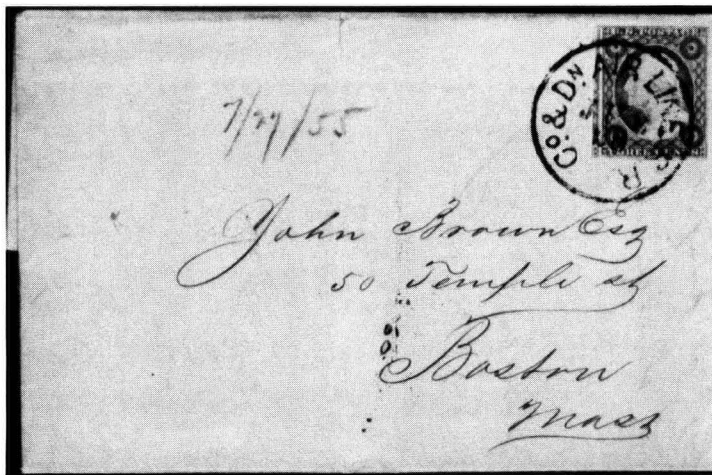 Co. & Dn. AIR LINE R. R.
7/27/55
John Brown Esq
50 Temple st
Boston
Mass